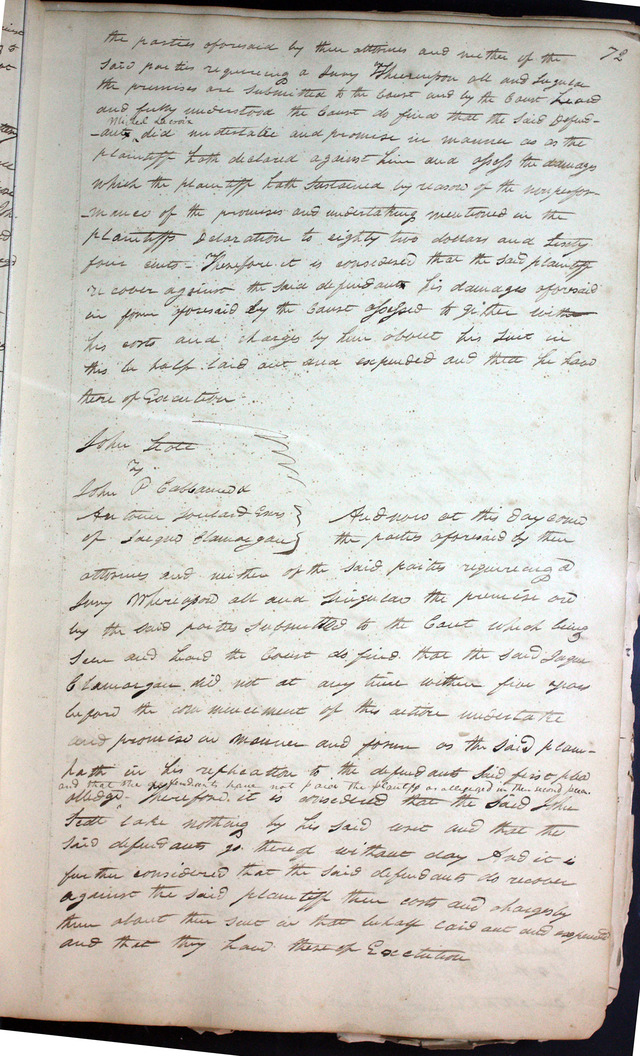 72
the parties aforesaid by their attornies and neither of the
said parties requireing a Jury Whereupon all and Singular
the premises are submitted to the Court and by the Court heard
and fully understood the Court do find that the said Defend-
Michel Lacroix
-ant did undertake and promise in manner as as the
plaintiff hath declared against him and assess the damages
which the plaintiff hath Sustained by reason of the nonperfor-
-mance of the promises and undertaking mentioned in the
plaintiffs Declaration to eighty two dollars and Sixty
four cents - Therefore it is considered that the said plaintiff
recover against the said defendant his damages aforesaid
in form aforesaid by the Court assessed to gither with
his costs and charges by him about his Suit in
this be half laid out and expended and that he have
there of Execution
John Scott
vs
John P Cabbanne &
Antoine Soulard Exrs
of Jaque Clamorgan
And now at this Day come
the parties aforesaid by their
attornies and neither of the said parties requireing a
Jury Whereupon all and Singular the premise are
by the said parties Submitted to the Court which being
Seen and heard the Court do find that the said Jaque
Clamorgan did not at any time within five years
before the commencement of this action undertake
and promise in manner and form as the said plain-
hath in his replication to the defendants said first plea
and that the defendants have not paid the plaintiff as alledged in their second plea
alledge. Therefore it is considered that the said John
Scott take nothing by his said writ and that the
said defendants go thereof without day And it is
further considered that the said defendants do recover
against the said plaintiff their costs and charges by
them about their suit in that behalf laid out and expended
and that they have there of Execution